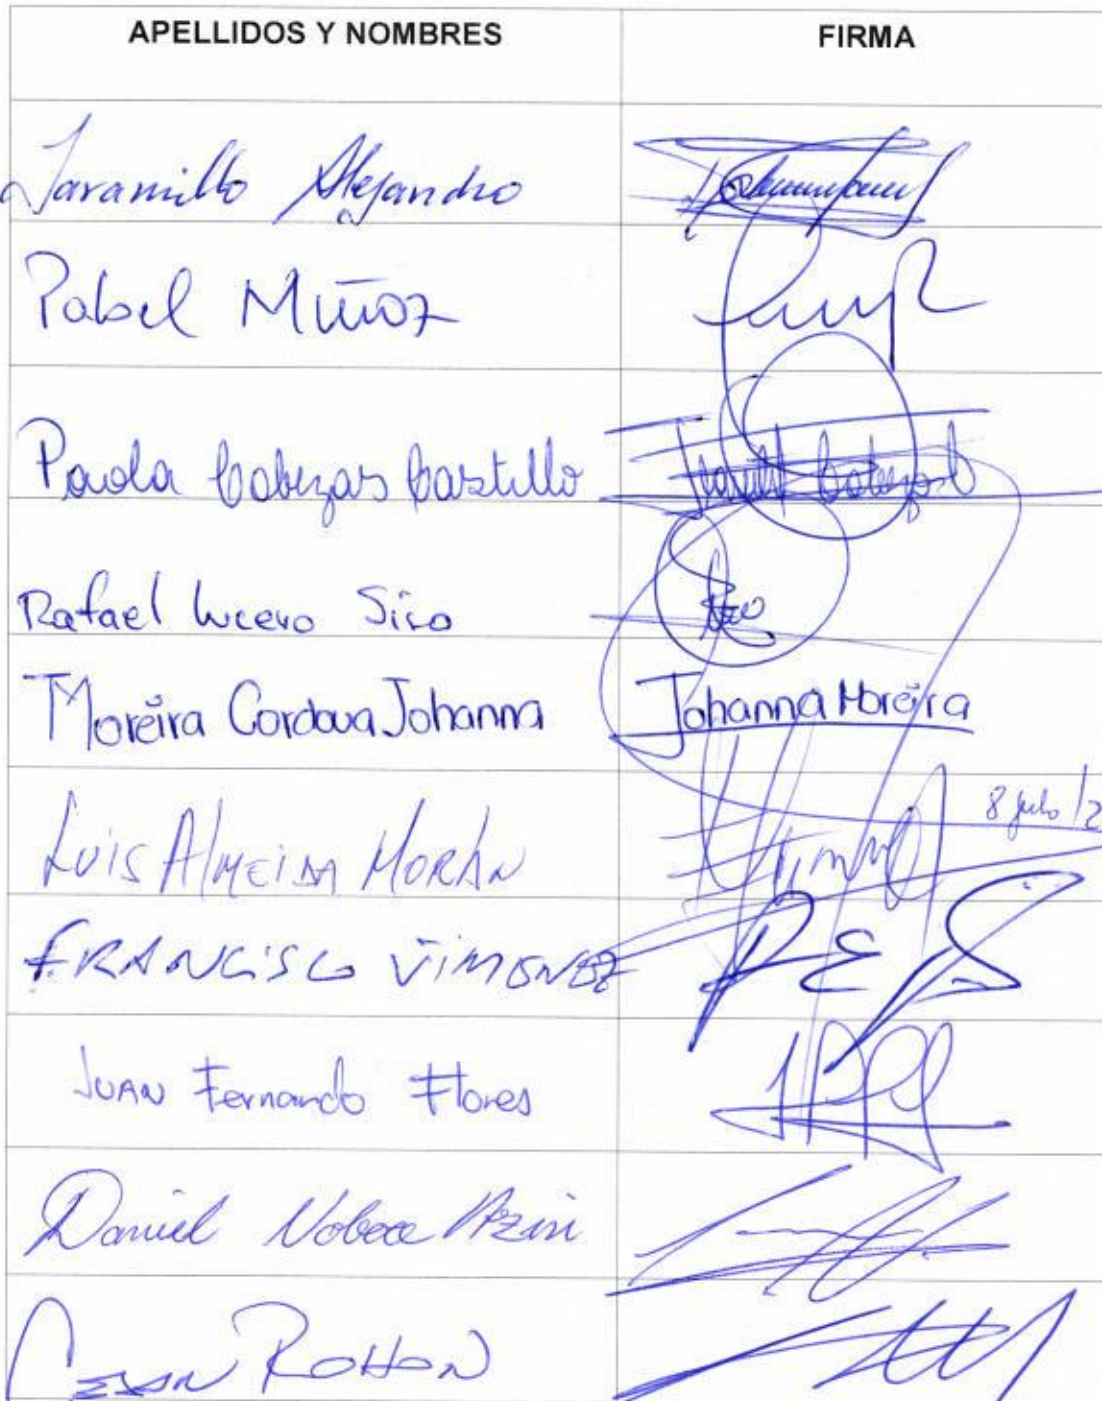 APELLIDOS Y NOMBRES FIRMA
Jaramillo Alejandro
Pabel Muñoz
Paola Cabezas Castillo
Rafael Lucero Siso
Moreira Cordova Johanna Johanna Moreira
Luis Almeida Morán
8 Julio /2
FRANCISCO JIMENEZ
JUAN Fernando Flores
Daniel Noboa Azin
Cesar Rohon